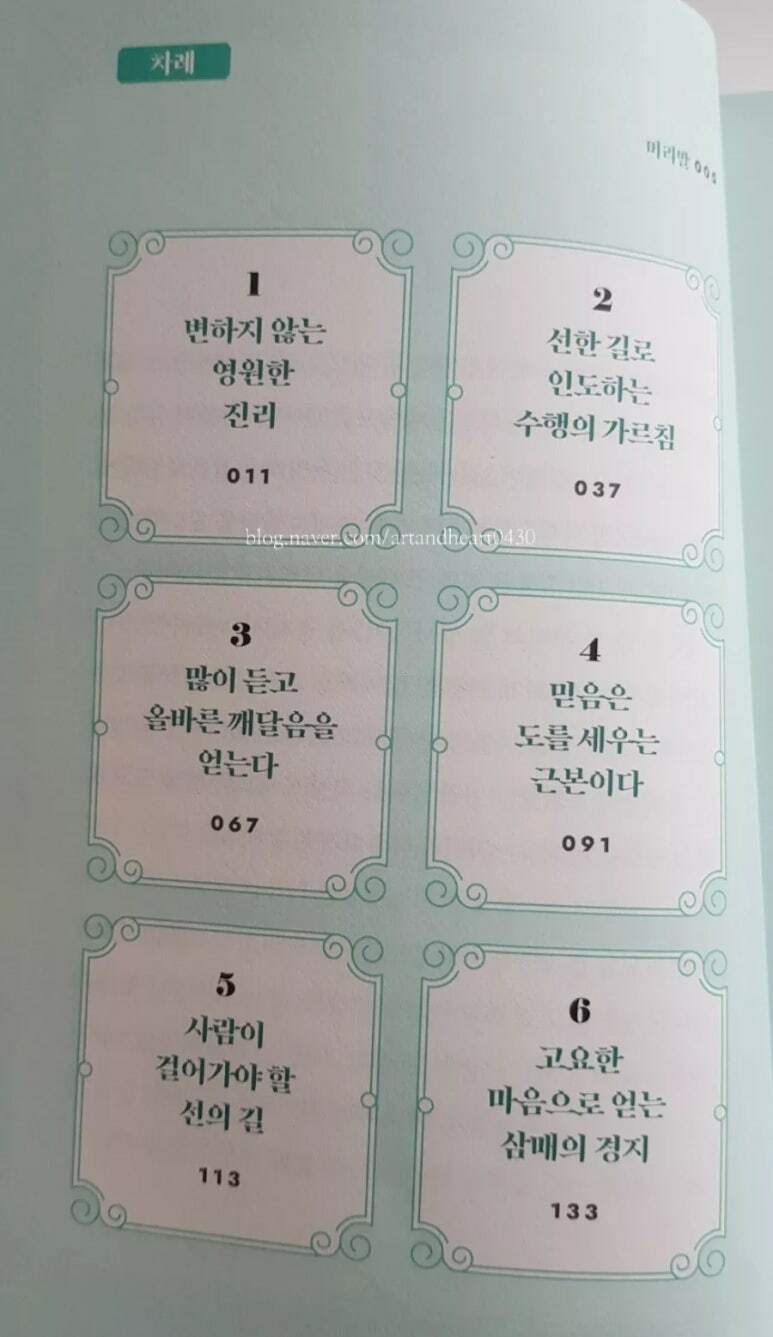 차례
머리말 005
1
변하지 않는
영원한
진리
011
2
선한 길로
인도하는
수행의 가르침
037
blog.naver.com/artandheart0430
3
많이 듣고
올바른 깨달음을
얻는다
067
4
믿음은
도를 세우는
근본이다
091
5
사람이
걸어가야 할
선의 길
113
6
고요한
마음으로 얻는
삼매의 경지
133